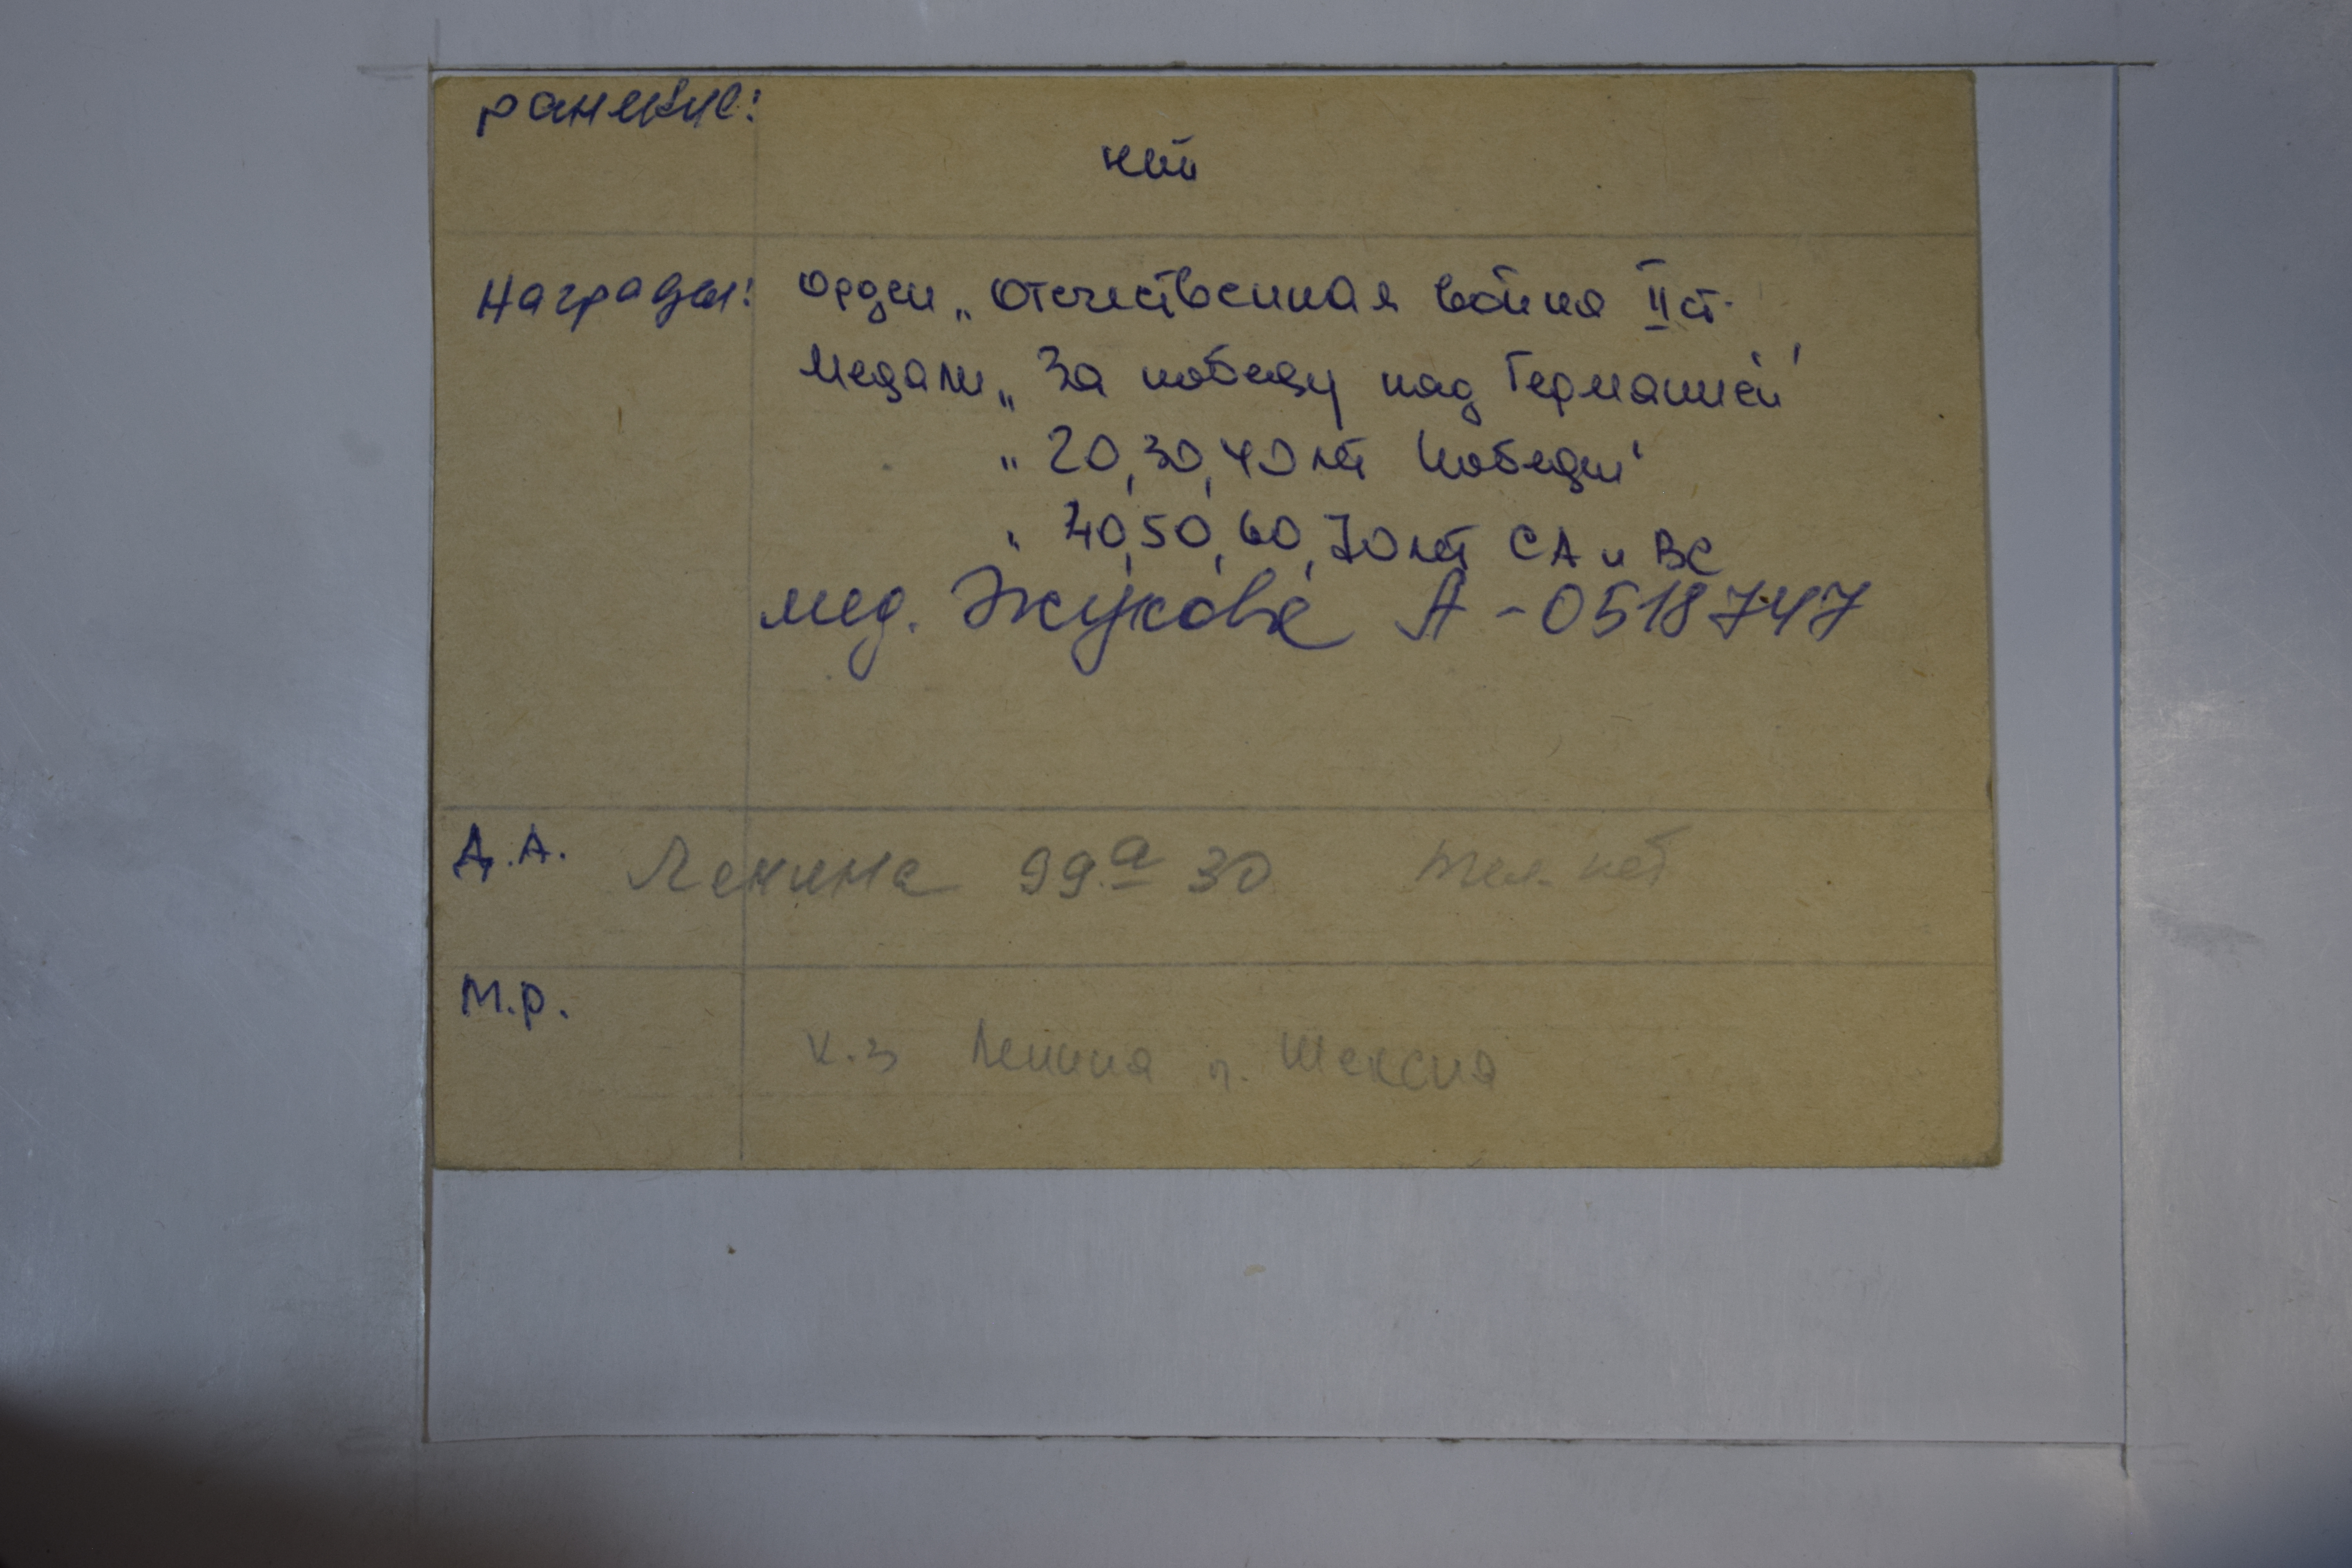 ранение:
нет
Награды: Орден „Отечественная война II ст.
Медали „За победу над Германией"
„20, 30, 40 лет Победы"
„40, 50, 60, 70 лет СА и ВС
мед. Жукова А - 0518747
Д.А. Ленина 99а 30 тел. нет
М.р.
к.з Ленина п. Шексна